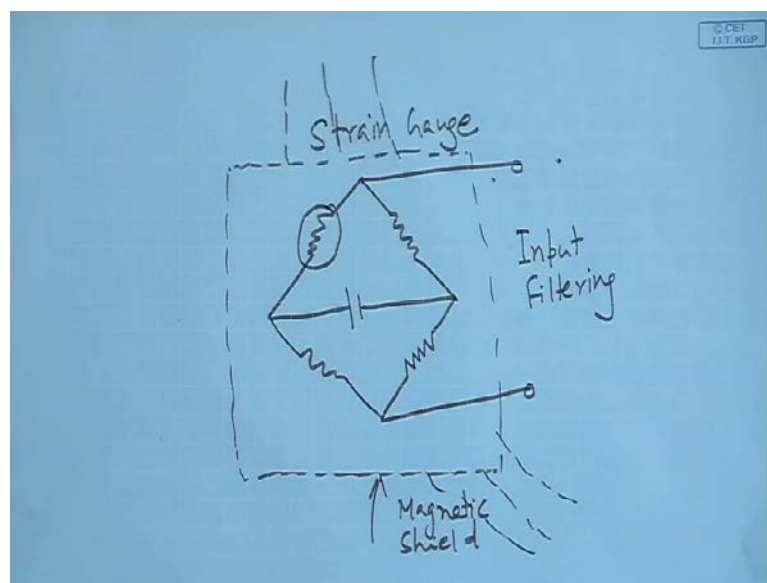 © CET
I.I.T. KGP
Strain Gauge
Input
Filtering
Magnetic
Shield